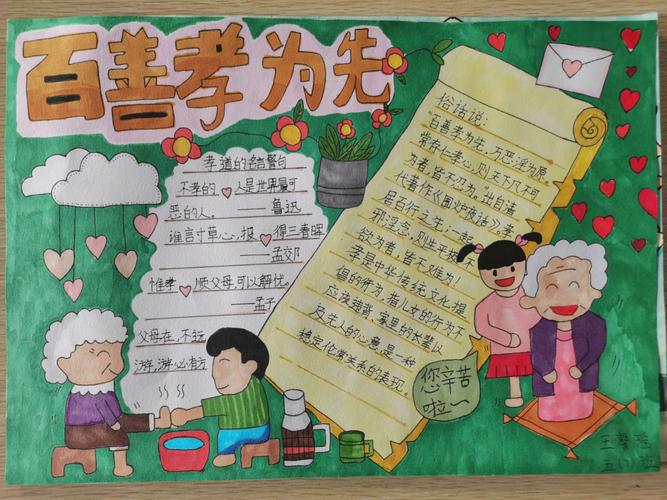 百善孝为先
孝道的名言警句
不孝的人是世界最可
恶的人。 鲁迅
谁言寸草心,报得三春晖
——孟郊
惟孝顺父母,可以解忧。
——孟子
父母在,不远
游,游必有方
俗话说:
"百善孝为先,万恶淫为原
常存仁孝心,则天下凡不可
为者,皆不忍为"出自清
代著作《围炉夜话》。孝
居百行之先;一起
邪淫念,则生平极不
欲为者,皆不难为!
孝是中华传统文化提
倡的行为,指儿女的行为不
应该违背家里的长辈以
及先人的心意是一种
稳定伦常关系的表现。
您辛苦
啦~